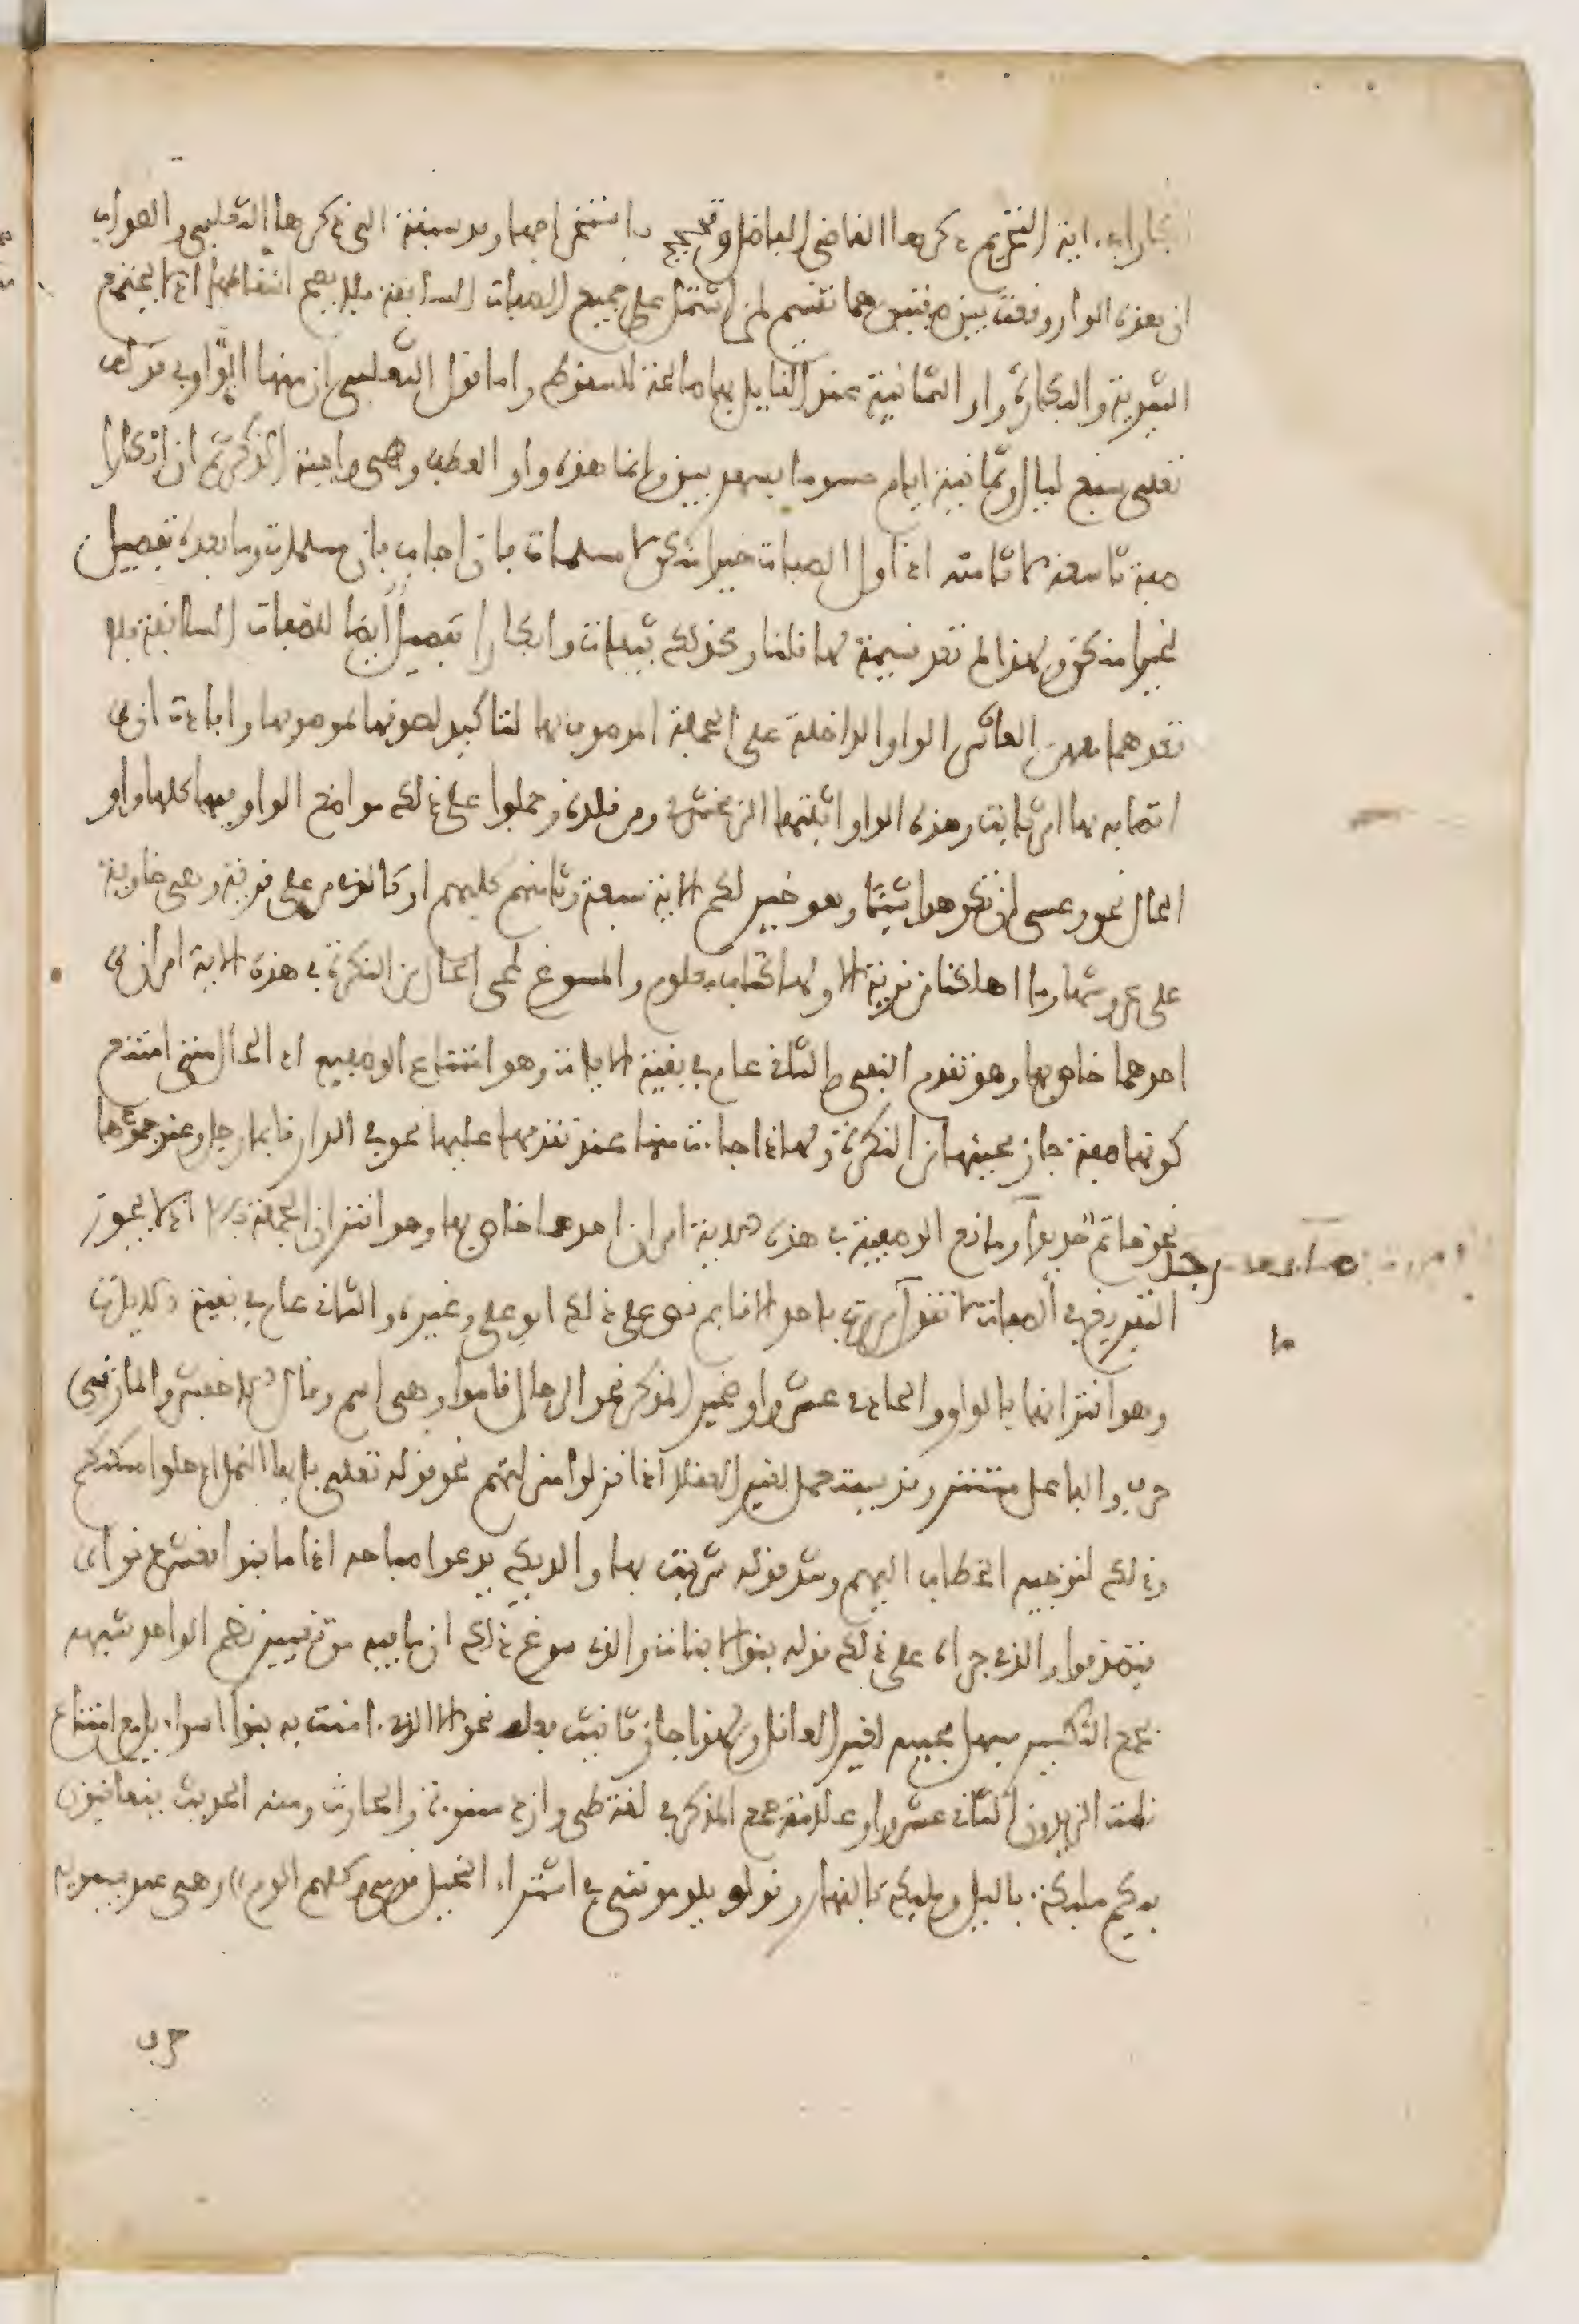 وابكارا في اية التحريم ذكرها القاضي الفاضل وتبجح باستخراجها وقد سبقه الى ذكرها الثعلبي والصواب
ان هذه الواو وقعت بين صفتين هما تقسيم لمن اشتمل على جميع الصفات السابقة فلا يصح اسقاطها اذ لا تجتمع
الثيوبة والبكارة وواو الثمانية عند القايل بها صالحة للسقوط واما قول الثعلبي ان منها الواو في قوله
تعلى سبع ليال وثمانية ايام حسوما فسهو بين وانما هذه واو العطف وهي واجبة الذكر ثم ان ابكارا
صفة تاسعة لا ثامنة اذ اول الصفات خيرا منكن لا مسلمات فان اجاب بان مسلمات وما بعده تفصيل
لخيرا منكن ولهذا لم تعد قسيمة لها قلنا وكذلك ثيبات وابكارا تفصيل ايضا للصفات السابقة فلا
نعدهما معهن العاشر الواو الداخلة على الجملة الموصوف بها لتاكيد لصوقها بموصوفها وافادت ان
اتصافه بها امر ثابت وهذه الواو اثبتها الزمخشري ومن قلده وحملوا على ذلك مواضع الواو فيها كلها واو
الحال نحو وعسى ان تكرهوا شيئا وهو خير لكم الاية سبعة وثامنهم كلبهم او كالذي مر على قرية وهي خاوية
على عروشها وما اهلكنا من قرية الا ولها كتاب معلوم والمسوغ لمجي الحال من النكرة في هذه الاية امران
احدهما خاص بها وهو تقدم النفي والثاني عام في بقية الايات وهو امتناع الوصفية اذ الحال متى امتنع
كونها صفة جاز مجيئها من النكرة ولهذا جاءت منها عند تقدمها عليها نحو في الدار قايما رجل وعند جمودها
نحو خاتم حديدا ومانع الوصفية في هذه الاية امران احدهما خاص بها وهو اقتران الجملة بالا اذ لا يجوز
التفريغ في الصفات لا تقول ما مررت باحد الا قايم نص على ذلك ابو علي وغيره والثاني عام في بقية الايات
وهو اقترانها بالواو والحادي عشر واو ضمير المذكر نحو الرجال قاموا وهي اسم وقال الاخفش والمازني
حرف والفاعل مستتر وقد يستعمل لغير العقلا اذا نزلوا منزلتهم نحو قوله تعلى يا ايها النمل ادخلوا مسكنكم
وذلك لتوجيه الخطاب اليهم وشذ قوله شربت بها والديك يدعوا صباحه اذا ما بنوا نعش دنوا
فتصوبوا والذي جراه على ذلك قوله بنو لا بنات والذي سوغ ذلك ان ما فيه من تغيير نظم الواحد شبهه
بجمع التكسير فسهل مجيئه لغير العاقل ولهذا جاز تانيث فعله نحو الا الذي ءامنت به بنوا اسراءيل مع امتناع
قامت الزيدون الثاني عشر واو علامة جمع المذكر في لغة طيء وازد شنوءة والحارث ومنه الحديث يتعاقبون
فيكم ملايكة باليل وملايكة بالنهار وقوله يلومونني في اشتراء النخيل قومي وكلهم الوم وهي عند سيبويه
حرف